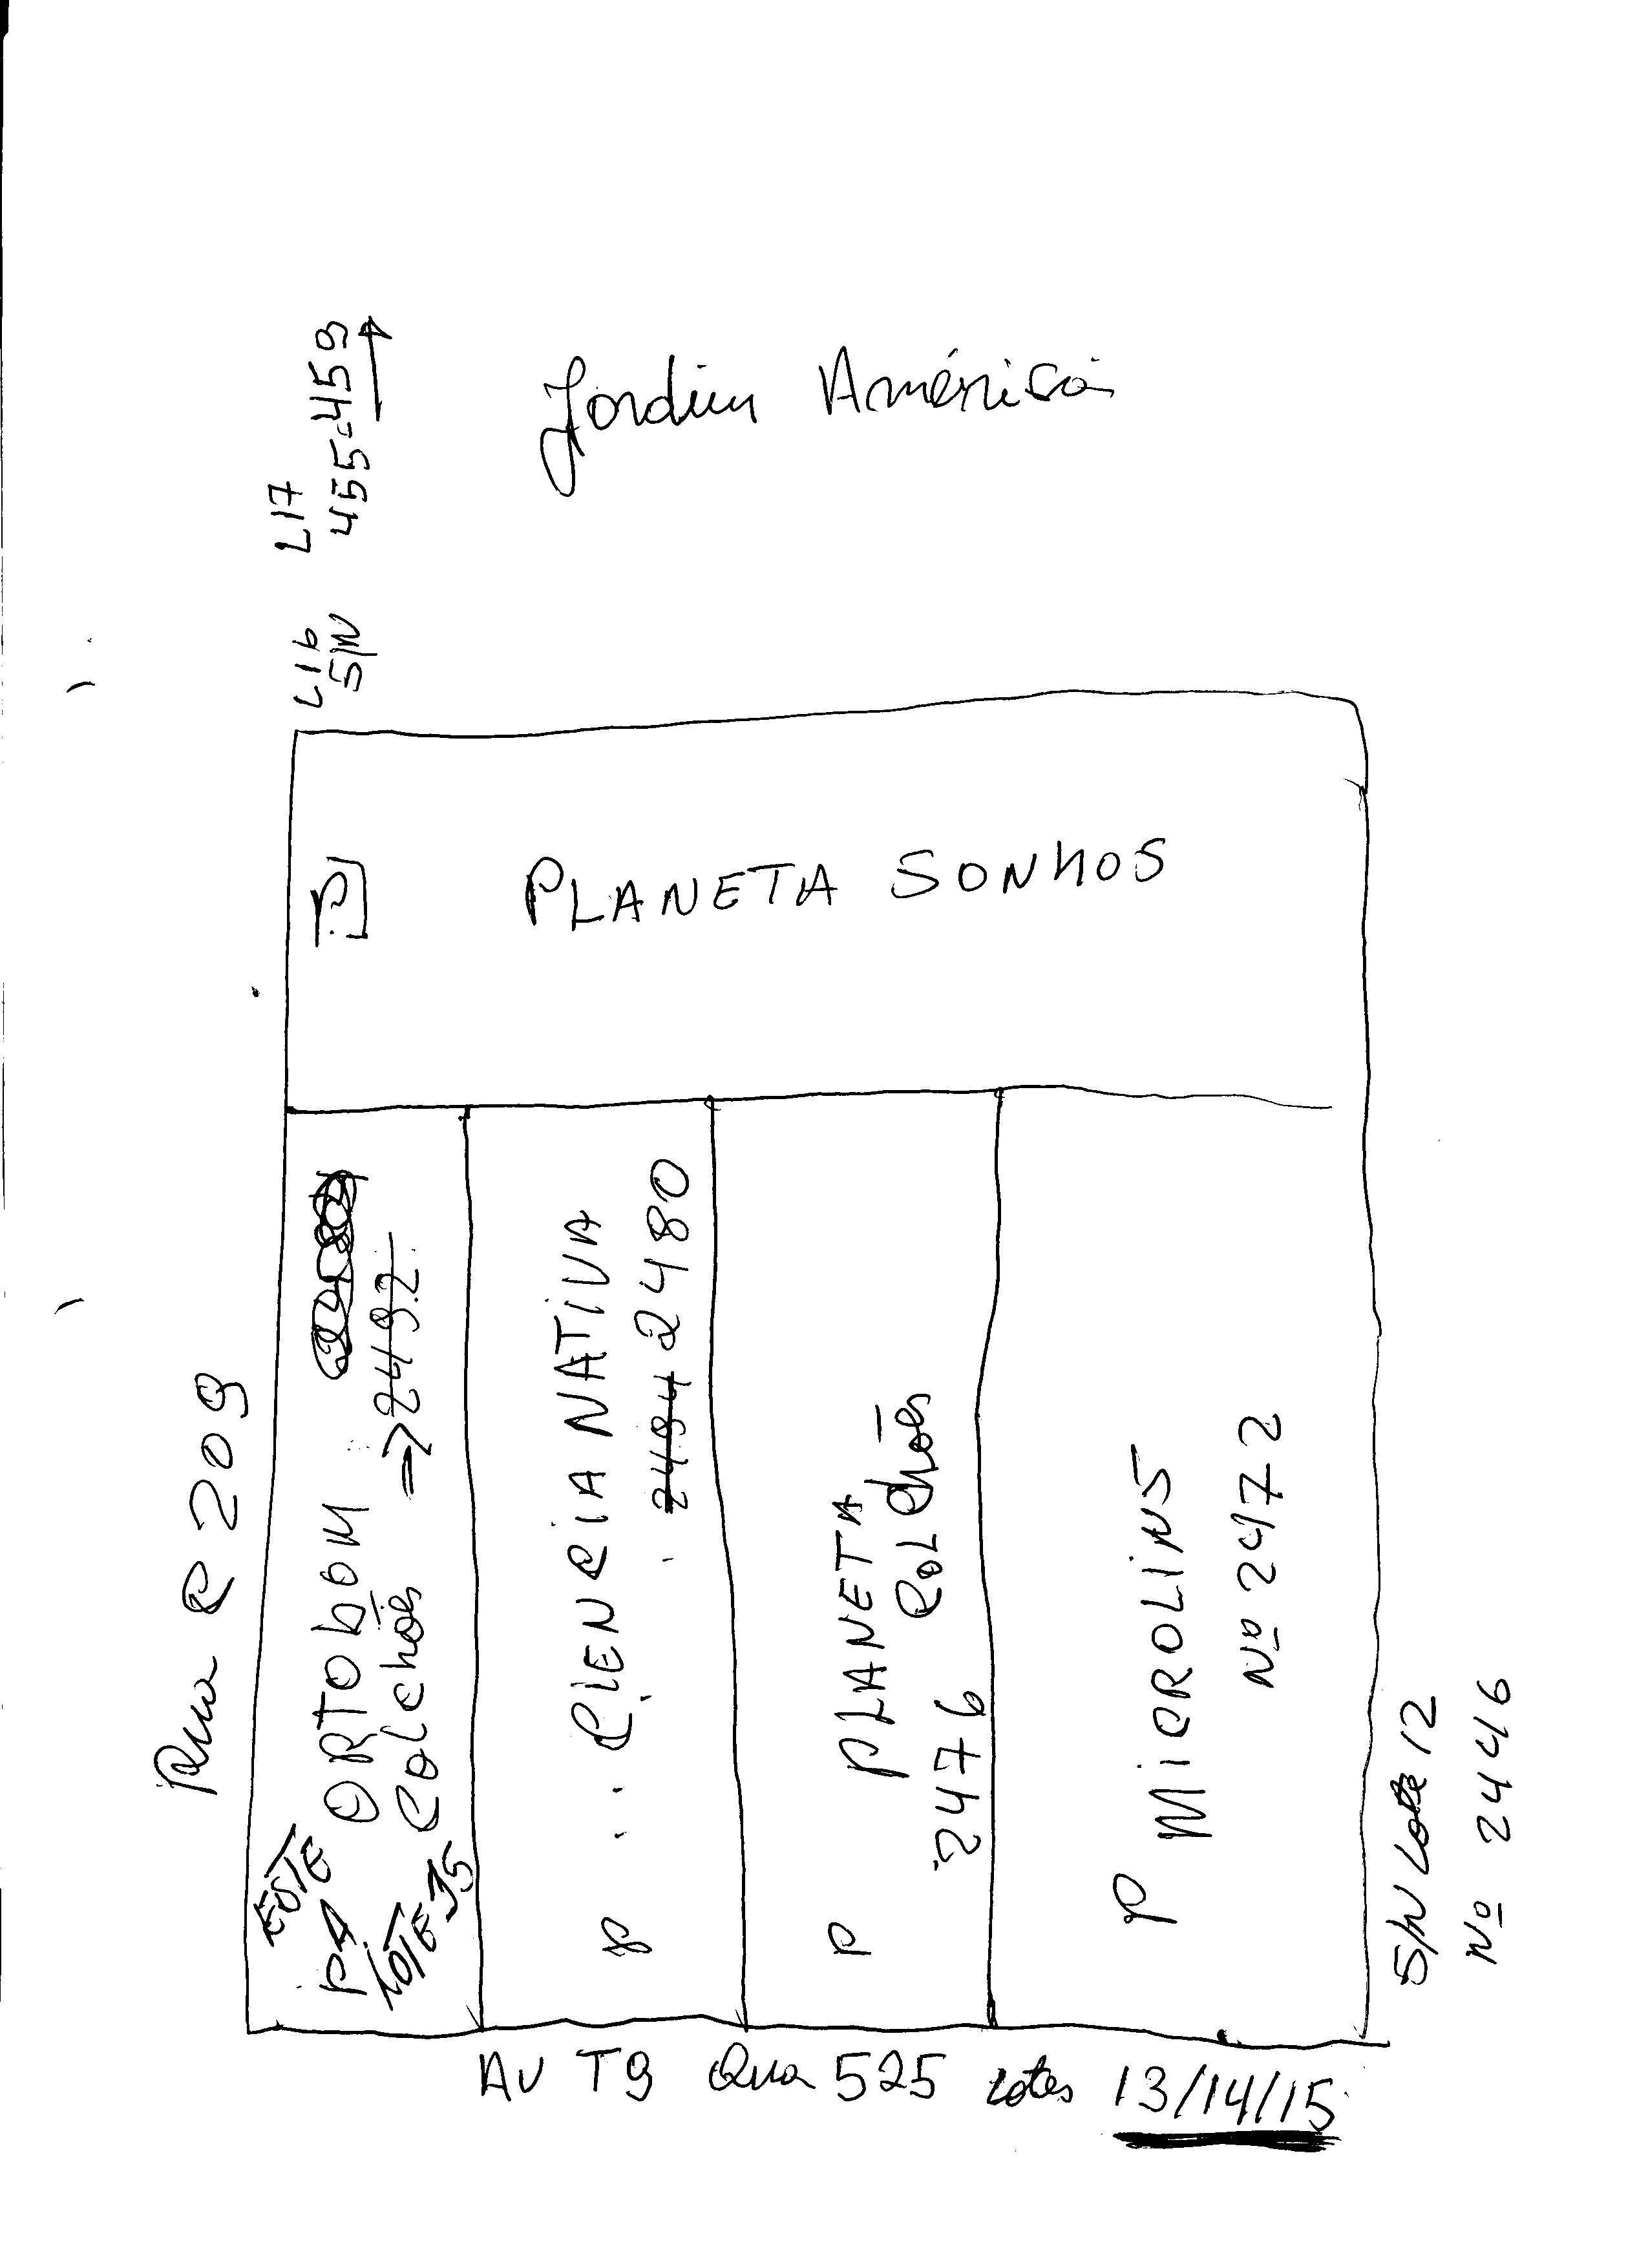 Rua C 209
L16 L17
S/N 455-459
Jardim América
P
PLANETA SONHOS
ESTE
PA
LOTE 15
ORTObOM
Colchões => 2492
P CIENCIA NATIVA
2484 2480
P PLANETA
Colchões
2476
P MiCROLiNS
Nº 2472
S/N Lote 12
Nº 2446
AV T9 Qua 525 Lotes 13/14/15